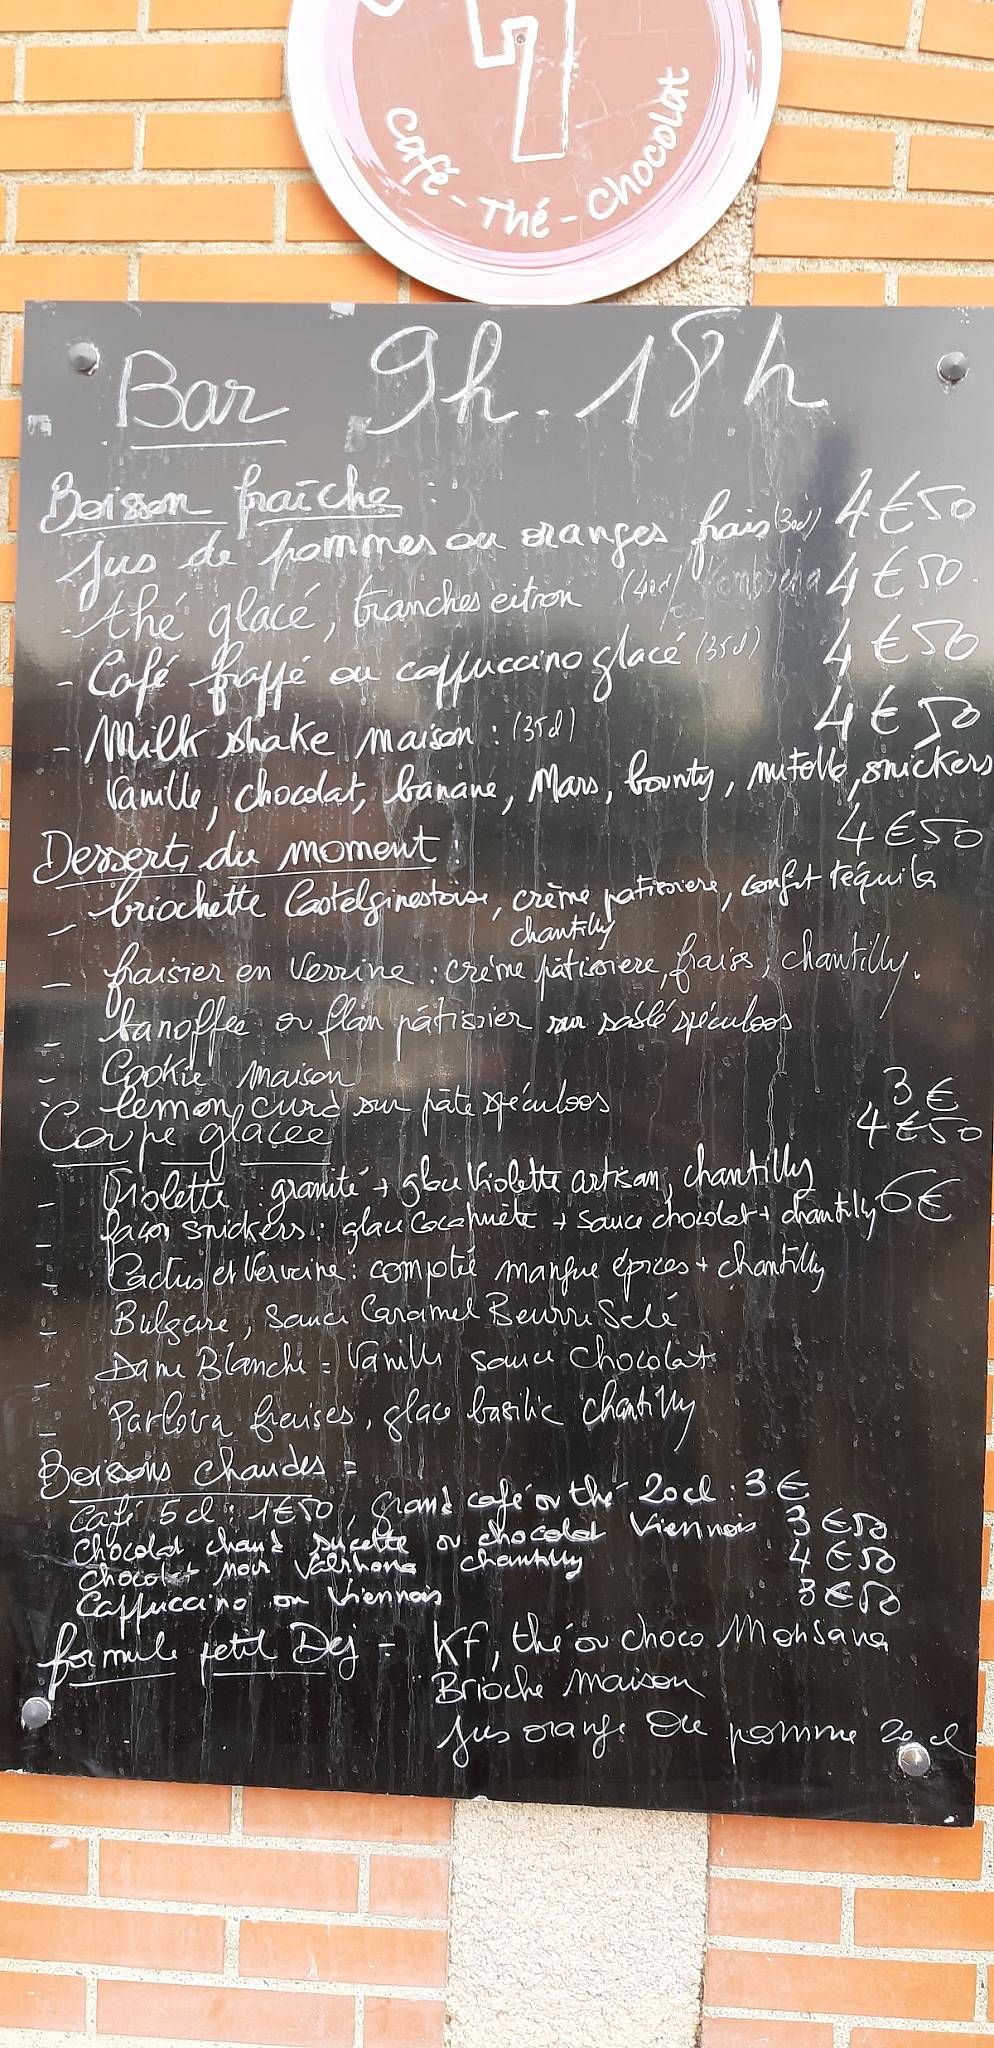 Café - Thé - Chocolat
Bar 9h - 18h
Boisson fraîche :
Jus de pommes ou oranges frais (30cl) 4€50
- thé glacé, tranches citron (40cl) 4€50
- Café frappé ou cappuccino glacé (35cl) 4€50
- Milk shake maison : (35cl) 4€50
Vanille, chocolat, banane, Mars, bounty, nutella, snickers
Desserts du moment : 4€50
- briochette Castelginestoise, crème patissiere, confit téquila
chantilly
- fraisier en verrine : crème pâtissiere, fraise, chantilly.
- banoffee ou flan pâtissier sur sablé spéculoos
- Cookie maison 3€
- lemon curd sur pâte spéculoos 4€50
Coupe glacée
- Violette granité + glace Violette artisan, chantilly
- façon snickers : glace Cacahuète + sauce chocolat + chantilly 6€
- Cactus et Verveine : compotée mangue épices + chantilly
- Bulgare, sauce Caramel Beurre Salé
- Dame Blanche = Vanille sauce chocolat
- Pavlova fraises, glace basilic chantilly
Boissons chaudes =
Café 5cl : 1€50, grand café ou thé 20cl : 3€
Chocolat chaud sucette ou chocolat Viennois 3€50
Chocolat noir Valrhona chantilly 4€50
Cappuccino ou Viennois 3€50
formule petit Dej = Kf, thé ou choco Monbana
Brioche Maison
Jus orange Ou pomme 20cl